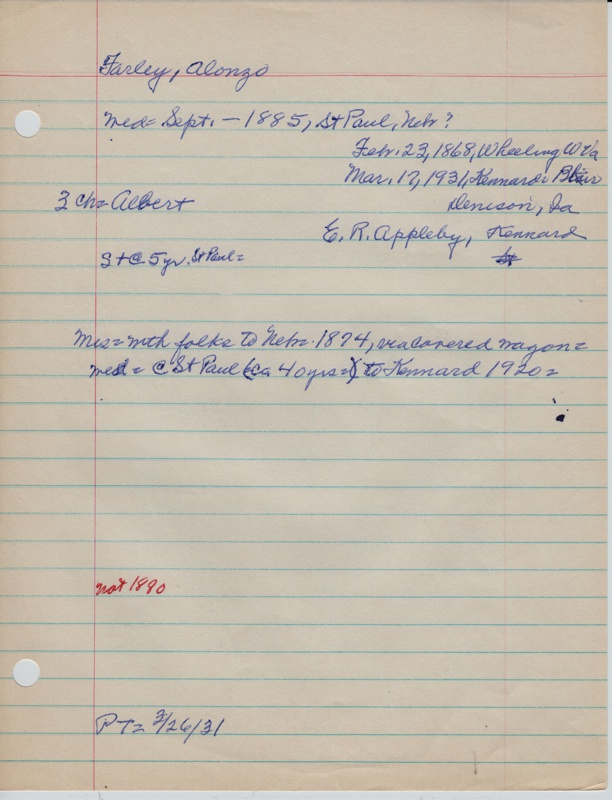 Farley, Alonzo
med= Sept. - 1885, St Paul, Nebr?
Feb. 23, 1868, Wheeling W Va
Mar. 17, 1931, Kennard: Blair
3 ch= Albert
Denison, Ia
E. R. Appleby, Kennard
S+C. 5 yr. St Paul=
Mis= with folks to Nebr. 1874, via covered wagon=
med= C St Paul (ca 40 yrs=) to Kennard 1920=
not 1890
PT= 3/26/31